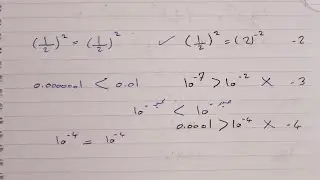 (1/2)² = (1/2)² ✓ (1/2)² = (2)⁻² -2
0.0000001 < 0.01 10⁻⁷ > 10⁻² × -3
10⁻ < 10⁻
0.0001 > 10⁻⁴ × -4
10⁻⁴ = 10⁻⁴